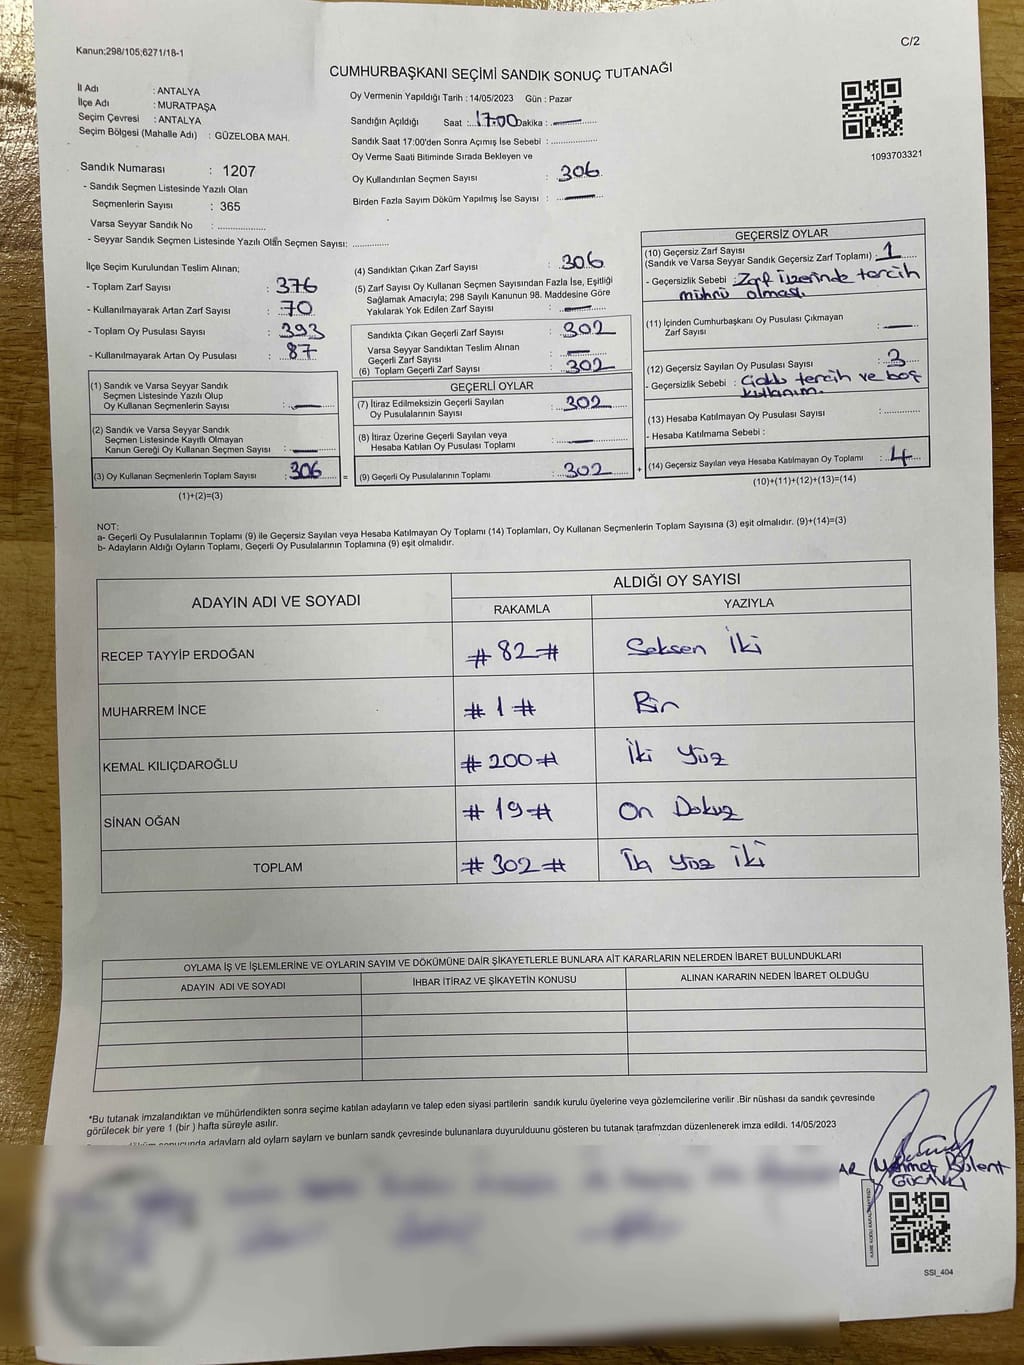 Kanun;298/105;6271/18-1
C/2
CUMHURBAŞKANI SEÇİMİ SANDIK SONUÇ TUTANAĞI
İl Adı : ANTALYA
İlçe Adı : MURATPAŞA
Seçim Çevresi : ANTALYA
Seçim Bölgesi (Mahalle Adı) : GÜZELOBA MAH.
Sandık Numarası : 1207
- Sandık Seçmen Listesinde Yazılı Olan
Seçmenlerin Sayısı : 365
Varsa Seyyar Sandık No : ..................
- Seyyar Sandık Seçmen Listesinde Yazılı Olan Seçmen Sayısı: .............
Oy Vermenin Yapıldığı Tarih : 14/05/2023 Gün : Pazar
Sandığın Açıldığı Saat : 17.00 Dakika : —
Sandık Saat 17:00'den Sonra Açımış İse Sebebi : ...............
Oy Verme Saati Bitiminde Sırada Bekleyen ve
Oy Kullandırılan Seçmen Sayısı : 306
Birden Fazla Sayım Döküm Yapılmış İse Sayısı : —
1093703321
İlçe Seçim Kurulundan Teslim Alınan;
- Toplam Zarf Sayısı : 376
- Kullanılmayarak Artan Zarf Sayısı : 70
- Toplam Oy Pusulası Sayısı : 393
- Kullanılmayarak Artan Oy Pusulası : 87
(1) Sandık ve Varsa Seyyar Sandık
Seçmen Listesinde Yazılı Olup
Oy Kullanan Seçmenlerin Sayısı : —
(2) Sandık ve Varsa Seyyar Sandık
Seçmen Listesinde Kayıtlı Olmayan
Kanun Gereği Oy Kullanan Seçmen Sayısı : —
(3) Oy Kullanan Seçmenlerin Toplam Sayısı : 306 =
(1)+(2)=(3)
(4) Sandıktan Çıkan Zarf Sayısı : 306
(5) Zarf Sayısı Oy Kullanan Seçmen Sayısından Fazla İse, Eşitliği
Sağlamak Amacıyla; 298 Sayılı Kanunun 98. Maddesine Göre
Yakılarak Yok Edilen Zarf Sayısı : —
Sandıkta Çıkan Geçerli Zarf Sayısı : 302
Varsa Seyyar Sandıktan Teslim Alınan
Geçerli Zarf Sayısı : —
(6) Toplam Geçerli Zarf Sayısı : 302
GEÇERLİ OYLAR
(7) İtiraz Edilmeksizin Geçerli Sayılan
Oy Pusulalarının Sayısı : 302
(8) İtiraz Üzerine Geçerli Sayılan veya
Hesaba Katılan Oy Pusulası Toplamı : —
(9) Geçerli Oy Pusulalarının Toplamı : 302 +
GEÇERSİZ OYLAR
(10) Geçersiz Zarf Sayısı
(Sandık ve Varsa Seyyar Sandık Geçersiz Zarf Toplamı) : 1
- Geçersizlik Sebebi : Zarf üzerinde tercih
mührü olması
(11) İçinden Cumhurbaşkanı Oy Pusulası Çıkmayan
Zarf Sayısı : —
(12) Geçersiz Sayılan Oy Pusulası Sayısı : 3
- Geçersizlik Sebebi : Çoklu tercih ve boş
kullanım.
(13) Hesaba Katılmayan Oy Pusulası Sayısı : ............
- Hesaba Katılmama Sebebi :
(14) Geçersiz Sayılan veya Hesaba Katılmayan Oy Toplamı : 4
(10)+(11)+(12)+(13)=(14)
NOT:
a- Geçerli Oy Pusulalarının Toplamı (9) ile Geçersiz Sayılan veya Hesaba Katılmayan Oy Toplamı (14) Toplamları, Oy Kullanan Seçmenlerin Toplam Sayısına (3) eşit olmalıdır. (9)+(14)=(3)
b- Adayların Aldığı Oyların Toplamı, Geçerli Oy Pusulalarının Toplamına (9) eşit olmalıdır.
ADAYIN ADI VE SOYADI ALDIĞI OY SAYISI
RAKAMLA YAZIYLA
RECEP TAYYİP ERDOĞAN # 82 # Seksen İki
MUHARREM İNCE # 1 # Bir
KEMAL KILIÇDAROĞLU # 200 # İki Yüz
SİNAN OĞAN # 19 # On Dokuz
TOPLAM # 302 # Üç Yüz İki
OYLAMA İŞ VE İŞLEMLERİNE VE OYLARIN SAYIM VE DÖKÜMÜNE DAİR ŞİKAYETLERLE BUNLARA AİT KARARLARIN NELERDEN İBARET BULUNDUKLARI
ADAYIN ADI VE SOYADI İHBAR İTİRAZ VE ŞİKAYETİN KONUSU ALINAN KARARIN NEDEN İBARET OLDUĞU
*Bu tutanak imzalandıktan ve mühürlendikten sonra seçime katılan adayların ve talep eden siyasi partilerin sandık kurulu üyelerine veya gözlemcilerine verilir .Bir nüshası da sandık çevresinde
görülecek bir yere 1 (bir ) hafta süreyle asılır.
adayların ald oyların sayları ve bunlarım sandk çevresinde bulunanlara duyurulduunu gösteren bu tutanak tarafmzdan düzenlenerek imza edildi. 14/05/2023
AR Mehmet Bülent
SSI_404